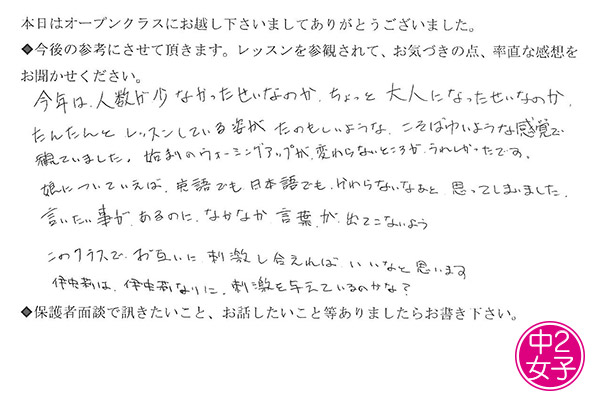 本日はオープンクラスにお越し下さいましてありがとうございました。
◆今後の参考にさせて頂きます。レッスンを参観されて、お気づきの点、率直な感想を
お聞かせください。
今年は、人数が少なかったせいなのか、ちょっと大人になったせいなのか、
たんたんとレッスンしている姿がたのもしいような、こそばゆいような感覚で
観ていました。始まりのウォーミングアップが、変わらないところが、うれしかったです。
娘についていえば、英語でも日本語でも、かわらないなあと思ってしまいました。
言いたい事が、あるのに、なかなか言葉が出てこないよう
このクラスで、お互いに刺激し合えれば、いいなと思います
なりに、刺激を与えているのかな?
◆保護者面談で訊きたいこと、お話したいこと等ありましたらお書き下さい。
中2
女子